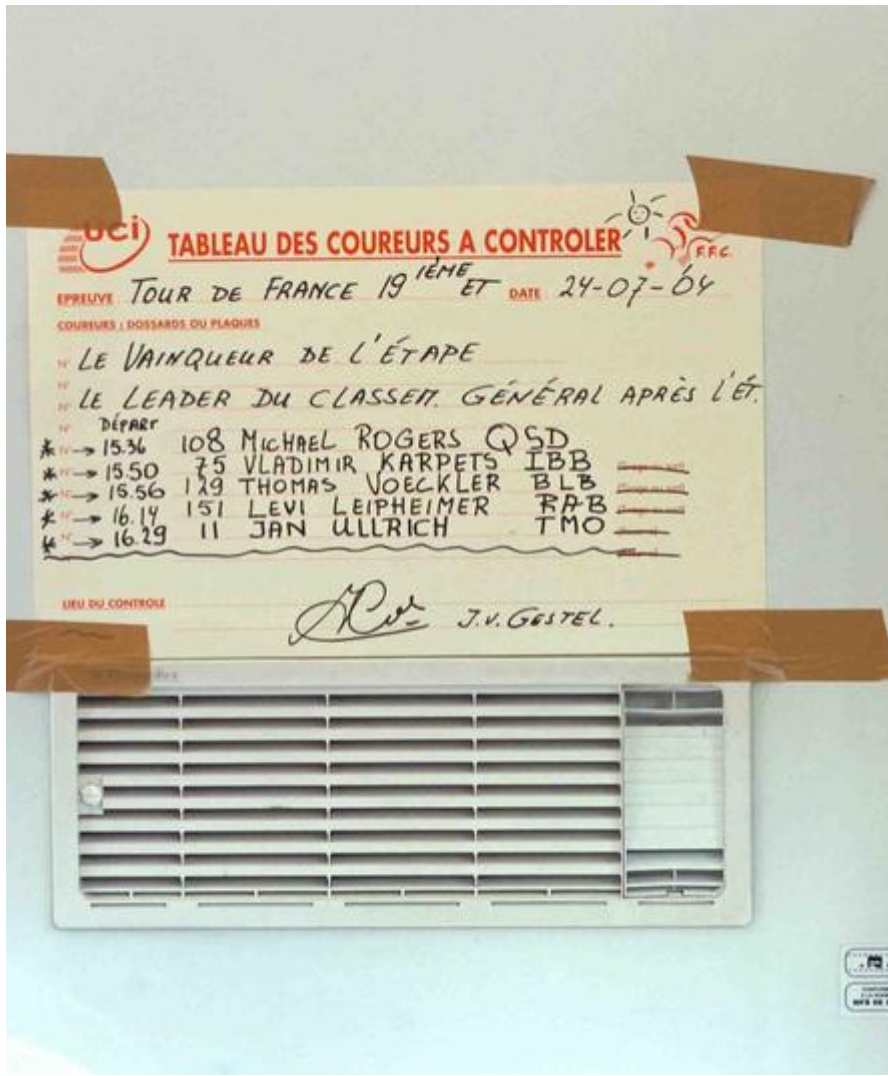 UCI TABLEAU DES COUREURS A CONTROLER F.F.C.
EPREUVE TOUR DE FRANCE 19 IÈME ET DATE 24-07-'04
COUREURS : DOSSARDS OU PLAQUES
N° LE VAINQUEUR DE L'ÉTAPE
N°
N° LE LEADER DU CLASSEM. GÉNÉRAL APRÈS L'ÉT.
N° DÉPART
* N° → 15.36 108 MICHAEL ROGERS QSD
* N° → 15.50 75 VLADIMIR KARPETS IBB
* N° → 15.56 129 THOMAS VOECKLER BLB
* N° → 16.14 151 LEVI LEIPHEIMER RAB
* N° → 16.29 11 JAN ULLRICH TMO
LIEU DU CONTROLE
J.V. GESTEL.